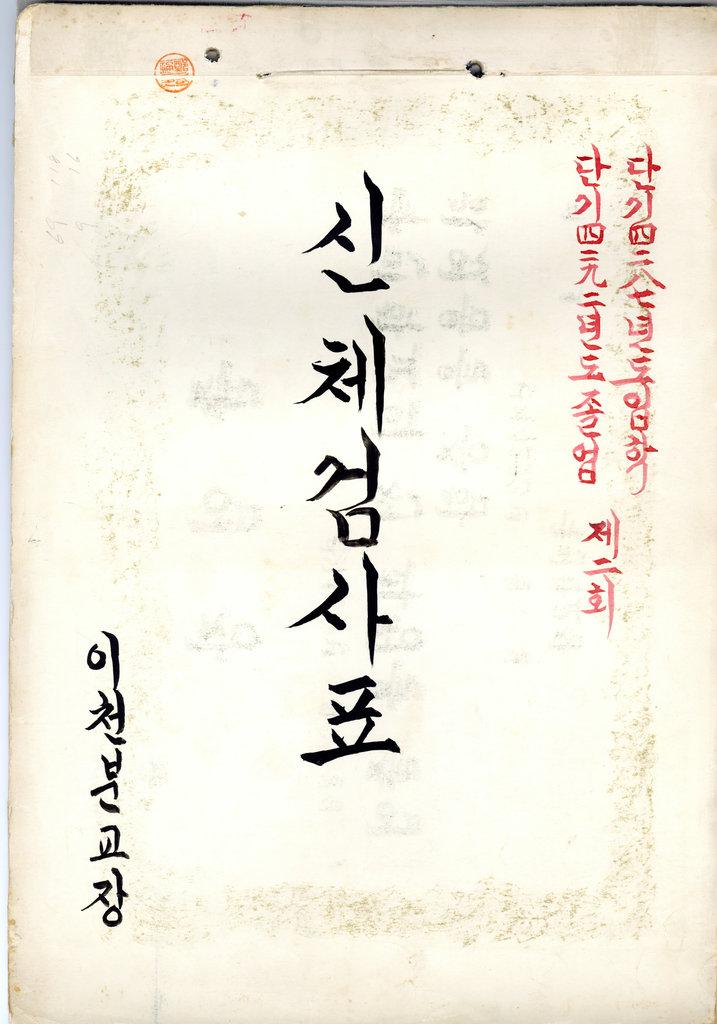 단기四二八七년도입학
단기四二九二년도졸업 제二회
신체검사표
이천분교장